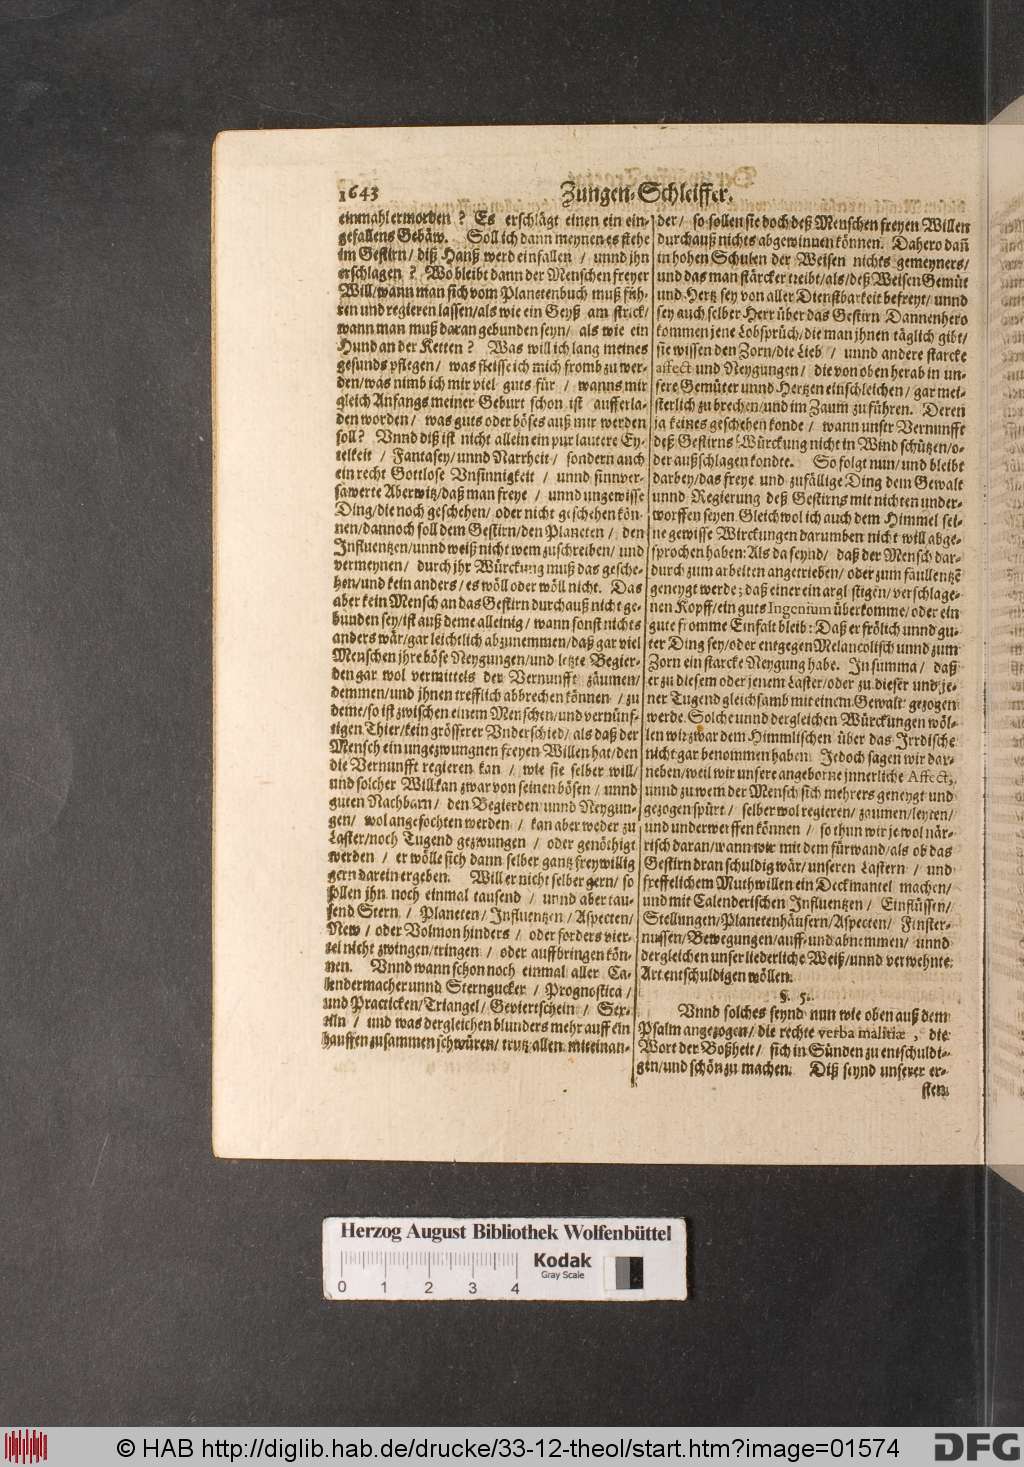 1643
Zungen-Schleiffer.
einmahl ermorden? Es erschlägt einen ein ein-
gefallens Gebäw. Soll ich dann meynen es stehe
im Gestirn/ diß Hanß werd einfallen / unnd jhn
erschlagen? Wo bleibt dann der Menschen freyer
Will/ wann man sich vom Planetenbuch muß füh-
ren und regieren lassen/ als wie ein Geyß am strick/
wann man muß daran gebunden seyn/ als wie ein
Hund an der Ketten? Was will ich lang meines
gesunds pflegen/ was fleisse ich mich fromb zu wer-
den/ was nimb ich mir viel guts für / wanns mir
gleich Anfangs meiner Geburt schon ist aufferla-
den worden/ was guts oder böses auß mir werden
soll? Vnnd diß ist nicht allein ein pur lautere Ey-
telkeit / Fantasey/ unnd Narrheit/ sondern auch
ein recht Gottlose Vnsinnigkeit / unnd sinnver-
sawerte Aberwitz/ daß man freye / unnd ungewisse
Ding/ die noch geschehen/ oder nicht geschehen kön-
nen/ dannoch soll dem Gestirn/ den Planeten/ den
Influentzen/ unnd weiß nicht wem zuschreiben/ und
vermeynen/ durch jhr Würckung muß das gesche-
hen/ und kein anders/ es wöll oder wöll nicht. Das
aber kein Mensch an das Gestirn durchauß nicht ge-
bunden sey/ ist auß deme alleinig/ wann sonst nichts
anders wär/ gar leichtlich abzunemmen/ daß gar viel
Menschen jhre böse Neygungen/ und letzte Begier-
den gar wol vermittels der Vernunfft zäumen/
demmen/ und jhnen trefflich abbrechen können / zu
deme/ so ist zwischen einem Menschen/ und vernünf-
tigen Thier/ kein grösserer Vnderschied/ als daß der
Mensch ein ungezwungnen freyen Willen hat/ den
die Vernunfft regieren kan / wie sie selber will/
und solcher Will kan zwar von seinen bösen / unnd
guten Nachbarn/ den Begierden unnd Neygun-
gen/ wol angefochten werden / kan aber weder zu
Laster/ noch Tugend gezwungen / oder genöthigt
werden / er wölle sich dann selber gantz freywillig
gern darein ergeben. Will er nicht selber gern/ so
sollen jhn noch einmal tausend / unnd aber tau-
send Stern / Planeten/ Influentzen/ Aspecten/
New / oder Volmon hinders / oder forders vier-
tel nicht zwingen/ tringen / oder auffbringen kön-
nen. Vnnd wann schon noch einmal aller Ca-
lendermacher unnd Sterngucker / Prognostica/
und Practicken/ Triangel/ Geviertschein/ Sex-
tiln / und was dergleichen blunders mehr auff ein
hauffen zusammen schwüren/ trutz allen miteinan-
der/ so sollen sie doch deß Menschen freyen Willen
durchauß nichts abgewinnen können. Dahero dañ
in hohen Schulen der Weisen nichts gemeyners/
und das man stärcker treibt/ als/ deß Weisen Gemüt
und Hertz sey von aller Dienstbarkeit befreyt/ unnd
sey auch selber Herr über das Gestirn Dannenhero
kommen jene Lobsprüch/ die man jhnen täglich gibt/
sie wissen den Zorn/ die Lieb / unnd andere starcke
affect und Neygungen/ die von oben herab in un-
sere Gemüter unnd Hertzen einschleichen/ gar mei-
sterlich zu brechen/ und im Zaum zu führen. Deren
ja keines geschehen konde/ wann unser Vernunfft
deß Gestirns Würckung nicht in Wind schützen/ o-
der außschlagen kondte. So folgt nun/ und bleibt
darbey/ das freye und zufällige Ding dem Gewalt
unnd Regierung deß Gestirns mit nichten under-
worffen seyen. Gleichwol ich auch dem Himmel sei-
ne gewisse Wirckungen darumben nicht will abge-
sprochen haben: Als da seynd/ daß der Mensch dar-
durch zum arbeiten angetrieben/ oder zum faullentzẽ
geneygt werde; daß einer ein argl stigen/ verschlage-
nen Kopff/ ein guts Ingenium überkomme/ oder ein
gute fromme Einfalt bleib: Daß er frölich unnd gu-
ter Ding sey/ oder entgegen Melancolisch unnd zum
Zorn ein starcke Neygung habe. In summa/ daß
er zu diesem oder jenem Laster/ oder zu dieser und je-
ner Tugend gleichsamb mit einem Gewalt gezogen
werde. Solche unnd dergleichen Würckungen wöl-
len wir zwar dem Himmlischen über das Irrdische
nicht gar benommen haben. Jedoch sagen wir dar-
neben/ weil wir unsere angeborne jnnerliche Affect,
unnd zu wem der Mensch sich mehrers geneygt und
gezogen spürt/ selber wol regieren/ zaumen/ leyten/
und underwerffen können/ so thun wir je wol när-
risch daran/ wann wir mit dem fürwand/ als ob das
Gestirn dran schuldig wär/ unseren Lastern / und
freffelichem Muthwillen ein Deckmantel machen/
und mit Calenderischen Influentzen/ Einflüssen/
Stellungen/ Planetenhäusern/ Aspecten/ Finster-
nussen/ Bewegungen/ auff- und abnemmen/ unnd
dergleichen unser liederliche Weiß/ unnd verwehnte
Art entschuldigen wöllen.
§. 5.
Vnnd solches seynd nun wie oben auß dem
Psalm angezogen/ die rechte verba malitiæ, die
Wort der Boßheit/ sich in Sünden zu entschuldi-
gen/ und schön zu machen. Diß seynd unserer er-
sten
Herzog August Bibliothek Wolfenbüttel
0 1 2 3 4
Kodak
Gray Scale
© HAB http://diglib.hab.de/drucke/33-12-theol/start.htm?image=01574
DFG